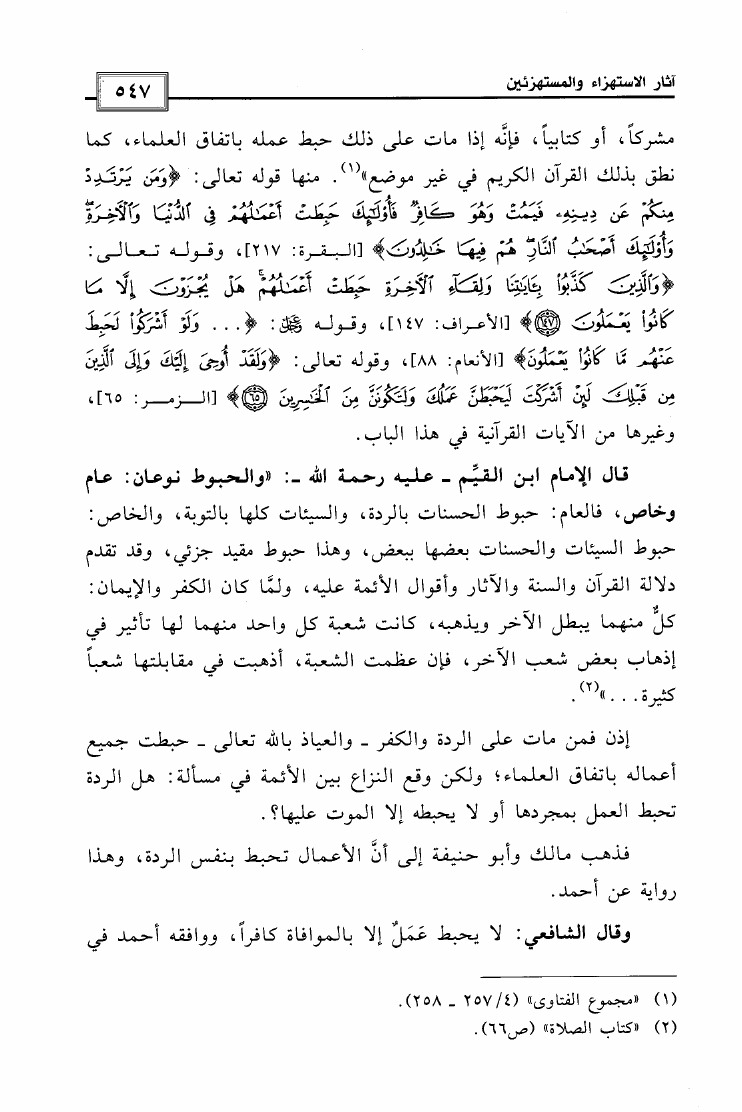 آثار الاستهزاء والمستهزئين
٥٤٧
مشركاً، أو كتابياً، فإنَّه إذا مات على ذلك حبط عمله باتفاق العلماء، كما
نطق بذلك القرآن الكريم في غير موضع»(١). منها قوله تعالى: ﴿وَمَن يَرْتَدِدْ
مِنكُمْ عَن دِينِهِۦ فَيَمُتْ وَهُوَ كَافِرٌ فَأُو۟لَٰٓئِكَ حَبِطَتْ أَعْمَٰلُهُمْ فِى ٱلدُّنْيَا وَٱلْءَاخِرَةِۖ
وَأُو۟لَٰٓئِكَ أَصْحَٰبُ ٱلنَّارِۖ هُمْ فِيهَا خَٰلِدُونَ﴾ [البقرة: ٢١٧]، وقوله تعالى:
﴿وَٱلَّذِينَ كَذَّبُوا۟ بِـَٔايَٰتِنَا وَلِقَآءِ ٱلْءَاخِرَةِ حَبِطَتْ أَعْمَٰلُهُمْۚ هَلْ يُجْزَوْنَ إِلَّا مَا
كَانُوا۟ يَعْمَلُونَ ١٤٧﴾ [الأعراف: ١٤٧]، وقوله ﷻ: ﴿... وَلَوْ أَشْرَكُوا۟ لَحَبِطَ
عَنْهُم مَّا كَانُوا۟ يَعْمَلُونَ﴾ [الأنعام: ٨٨]، وقوله تعالى: ﴿وَلَقَدْ أُوحِىَ إِلَيْكَ وَإِلَى ٱلَّذِينَ
مِن قَبْلِكَ لَئِنْ أَشْرَكْتَ لَيَحْبَطَنَّ عَمَلُكَ وَلَتَكُونَنَّ مِنَ ٱلْخَٰسِرِينَ ٦٥﴾ [الزمر: ٦٥]،
وغيرها من الآيات القرآنية في هذا الباب.
قال الإمام ابن القيَّم ـ عليه رحمة الله ـ: «والحبوط نوعان: عام
وخاص، فالعام: حبوط الحسنات بالردة، والسيئات كلها بالتوبة، والخاص:
حبوط السيئات والحسنات بعضها ببعض، وهذا حبوط مقيد جزئي، وقد تقدم
دلالة القرآن والسنة والآثار وأقوال الأئمة عليه، ولمَّا كان الكفر والإيمان:
كلٌّ منهما يبطل الآخر ويذهبه، كانت شعبة كل واحد منهما لها تأثير في
إذهاب بعض شعب الآخر، فإن عظمت الشعبة، أذهبت في مقابلتها شعباً
كثيرة...»(٢).
إذن فمن مات على الردة والكفر ـ والعياذ بالله تعالى ـ حبطت جميع
أعماله باتفاق العلماء؛ ولكن وقع النزاع بين الأئمة في مسألة: هل الردة
تحبط العمل بمجردها أو لا يحبطه إلا الموت عليها؟.
فذهب مالك وأبو حنيفة إلى أنَّ الأعمال تحبط بنفس الردة، وهذا
رواية عن أحمد.
وقال الشافعي: لا يحبط عَمَلٌ إلا بالموافاة كافراً، ووافقه أحمد في
(١) «مجموع الفتاوى» (٤/ ٢٥٧ ـ ٢٥٨).
(٢) «كتاب الصلاة» (ص٦٦).